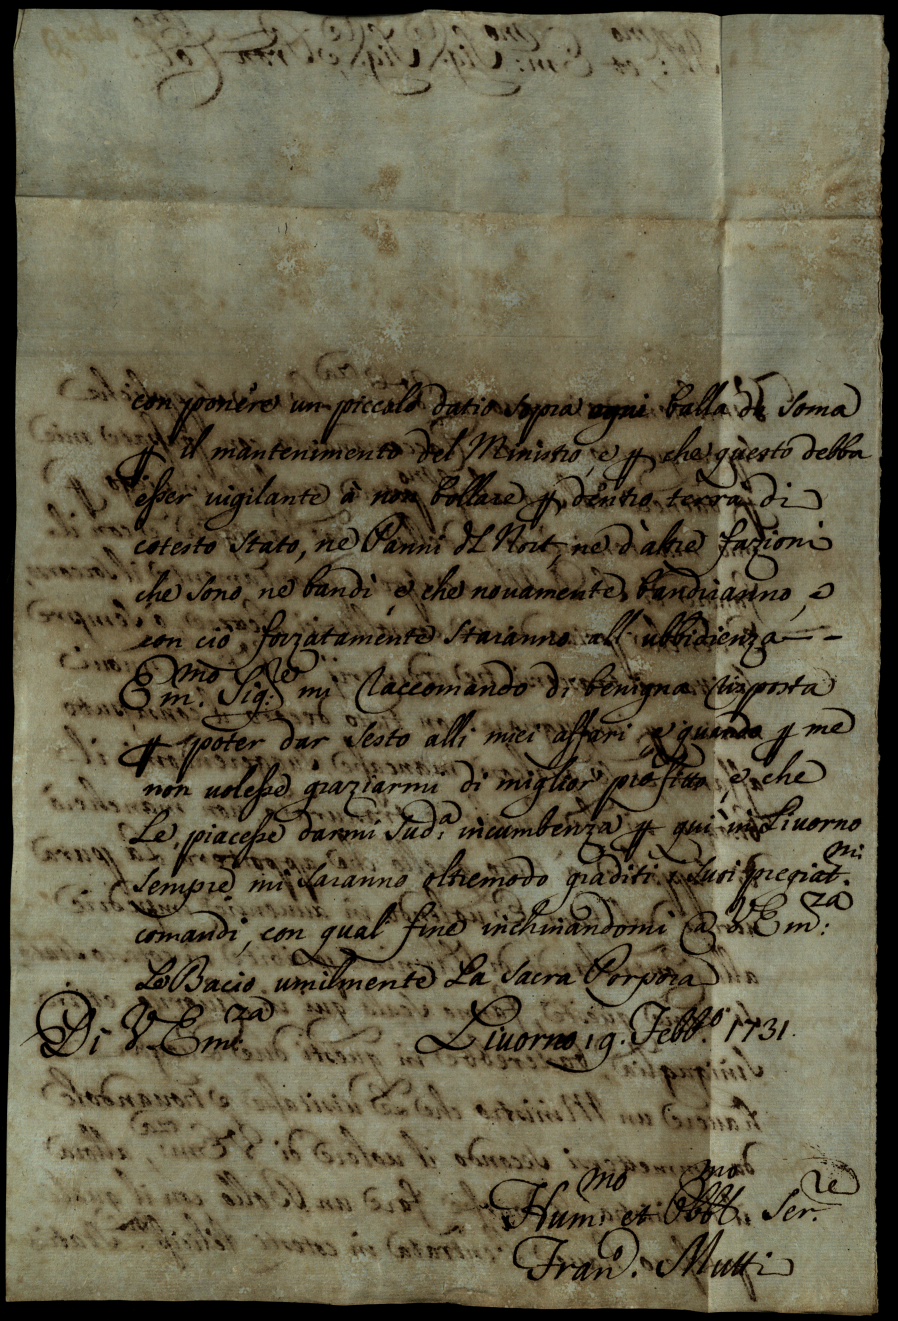 con ponere un piccolo datio sopra ogni balla dè soma
ꝑ il mantenimento del Ministro, e ꝑ che questo debba
esser vigilante à non bollare ꝑ dentro terra di
cotesto Stato, ne Panni dL Nort, ne d'altre fazioni
che sono, ne bandi è che novamente bandiranno, e
con ciò forzatamente staranno all'ubbidienza —
Em:mo Sig:re mi raccomando di benigna risposta
ꝑ poter dar sesto alli miei affari e quando ꝑ me
non volesse graziarmi di miglior profitto, e che
Le piacesse darmi sud:a incumbenza ꝑ qui in Livorno
sempre mi saranno oltremodo graditi i suoi pregiat:mi
comandi, con qual fine inchinandomi a V Em:za
Le Bacio umilmente La Sacra Porpora
Di V Em:za Livorno 19. Febb:o 1731.
Hum:mo et Obb:mo Ser:re
Fran:o Mutti